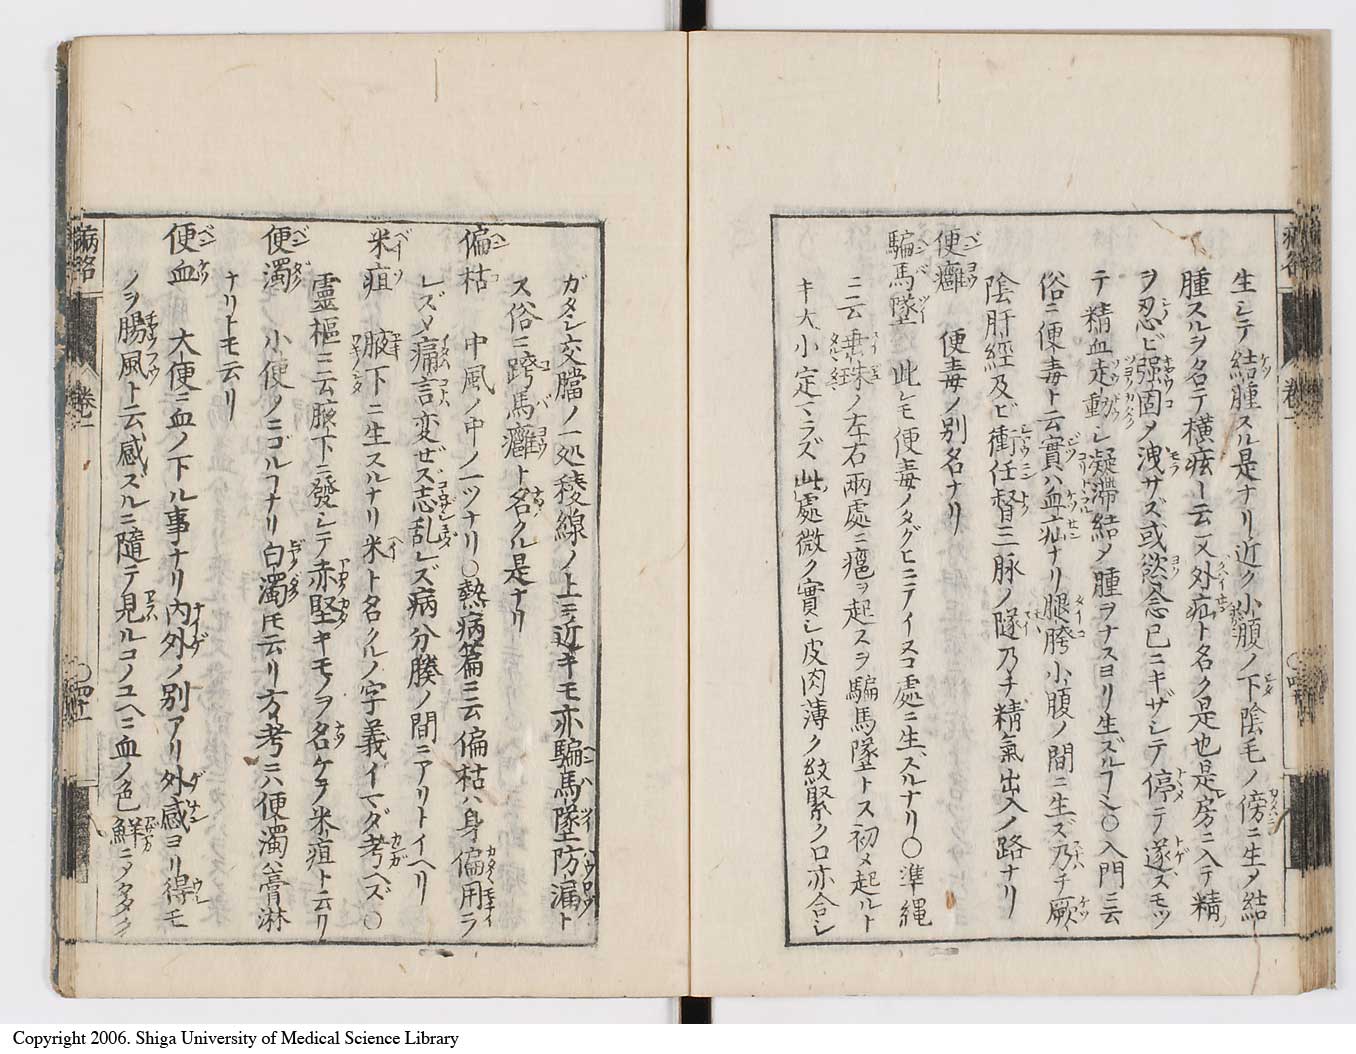 生シテ結腫スル是ナリ近ク小腹ノ下陰毛ノ傍ニ生メ結
腫スルヲ名テ横痃ト云又外疝ト名ク是也是房ニ入テ精
ヲ忍ビ强固メ洩サズ或慾念已ニキザシテ停テ遂ズモツ
テ精血走動シ凝滞結メ腫ヲナスヨリ生ズルヿ乄〇入門ニ云
俗ニ便毒ト云實ハ血疝ナリ腿胯小腹ノ間ニ生ズ乃チ厥
陰肝經及ビ衝任督三脉ノ隧乃チ精氣出入ノ路ナリ
便癰 便毒ノ別名ナリ
騙馬墜 此レモ便毒ノタグヒニテイスコ處ニ生ズルナリ〇準縄
ニ云垂珠ノ左右兩處ニ瘡ヲ起スヲ騙馬墜トス初メ起ルト
キ大小定マラズ此處微ク實シ皮肉薄ク紋緊ク口亦合シ
ガタシ交襠ノ一処稜線ノ上ニ近キモ亦騙馬墜防漏ト
ス俗ニ跨馬癰ト名クル是ナリ
偏枯 中風ノ中ノ一ツナリ〇熱病篇ニ云偏枯ハ身偏用ラ
レズメ痛言変ゼス志乱レズ病分腠ノ間ニアリトイヘリ
米疽 腋下ニ生スルナリ米ト名クルノ字義イマダ考ヘズ〇
靈樞ニ云腋下ニ發シテ赤堅キモノヲ名ケテ米疽ト云リ
便濁 小便ノニゴルヿナリ白濁トモ云リ方考ニハ便濁ハ膏淋
ナリトモ云リ
便血 大便ニ血ノ下ル事ナリ内外ノ別アリ外感ヨリ得モ
ノヲ腸風ト云感ズルニ隨テ見ルコノユヘニ血ノ色鮮ニ
病名
卷一
〇四十一
Copyright 2006. Shiga University of Medical Science Library